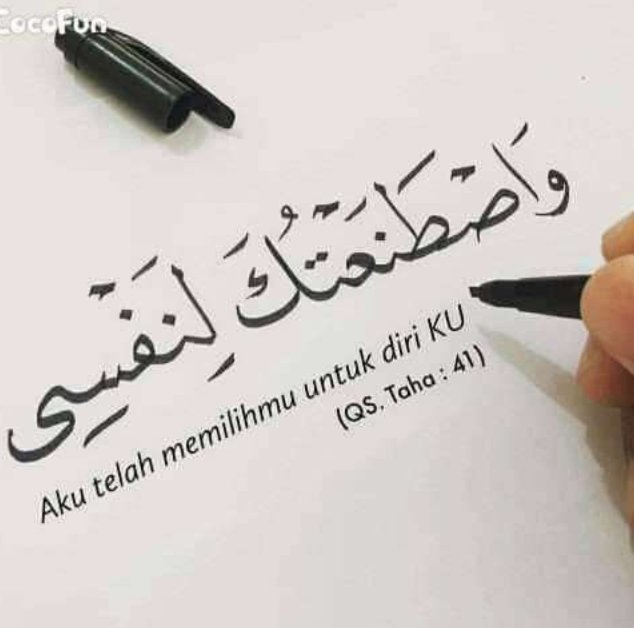 CocoFun
وَاصْطَنَعْتُكَ لِنَفْسِى
Aku telah memilihmu untuk diri KU
(QS. Taha : 41)